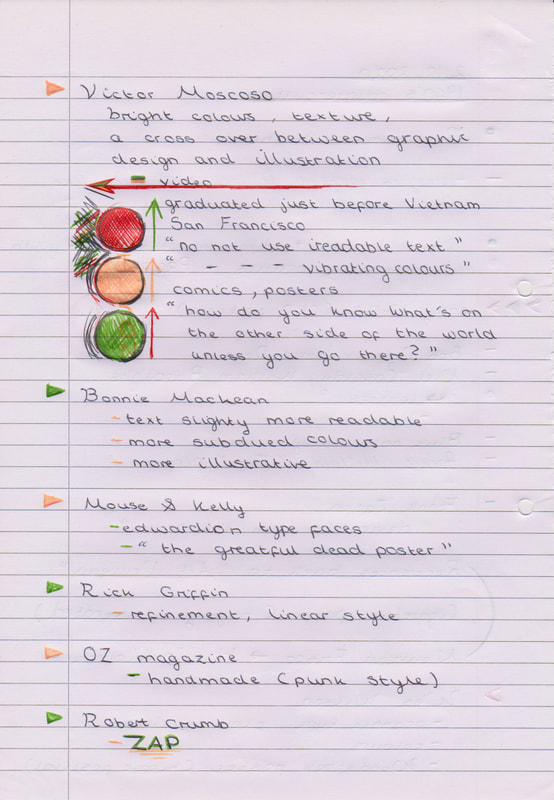 Victor Moscoso
bright colours, texture,
a cross over between graphic
design and illustration
- video
graduated just before Vietnam
San Francisco
"no not use ireadable text"
" - - - vibrating colours"
comics, posters
"how do you know what's on
the other side of the world
unless you go there?"
Bonnie Maclean
- text slighty more readable
- more subdued colours
- more illustrative
Mouse & Kelly
- edwardion type faces
- "the greatful dead poster"
Rick Griffin
- refinement, linear style
OZ magazine
- handmade (punk style)
Robert Crumb
- ZAP